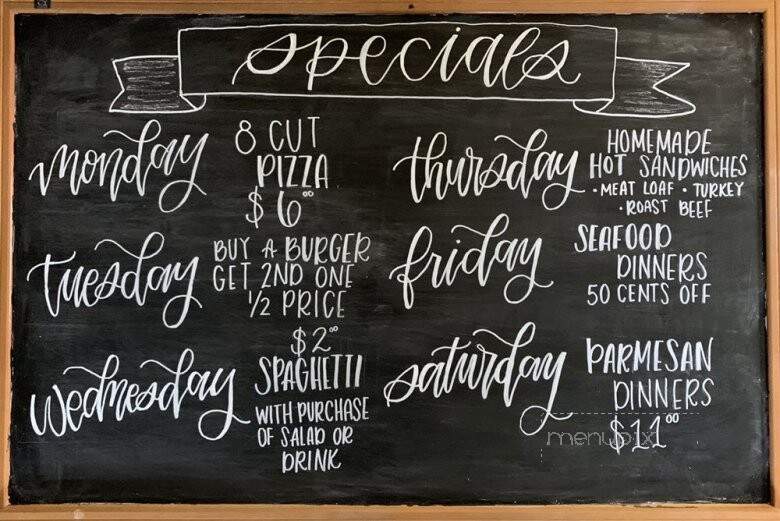 Specials
monday
8 CUT
PIZZA
$6⁰⁰
tuesday
BUY A BURGER
GET 2ND ONE
1/2 PRICE
wednesday
$2⁰⁰
SPAGHETTI
WITH PURCHASE
OF SALAD OR
DRINK
thursday
HOMEMADE
HOT SANDWICHES
• MEAT LOAF • TURKEY
• ROAST BEEF
friday
SEAFOOD
DINNERS
50 CENTS OFF
saturday
PARMESAN
DINNERS
$11⁰⁰
menupix